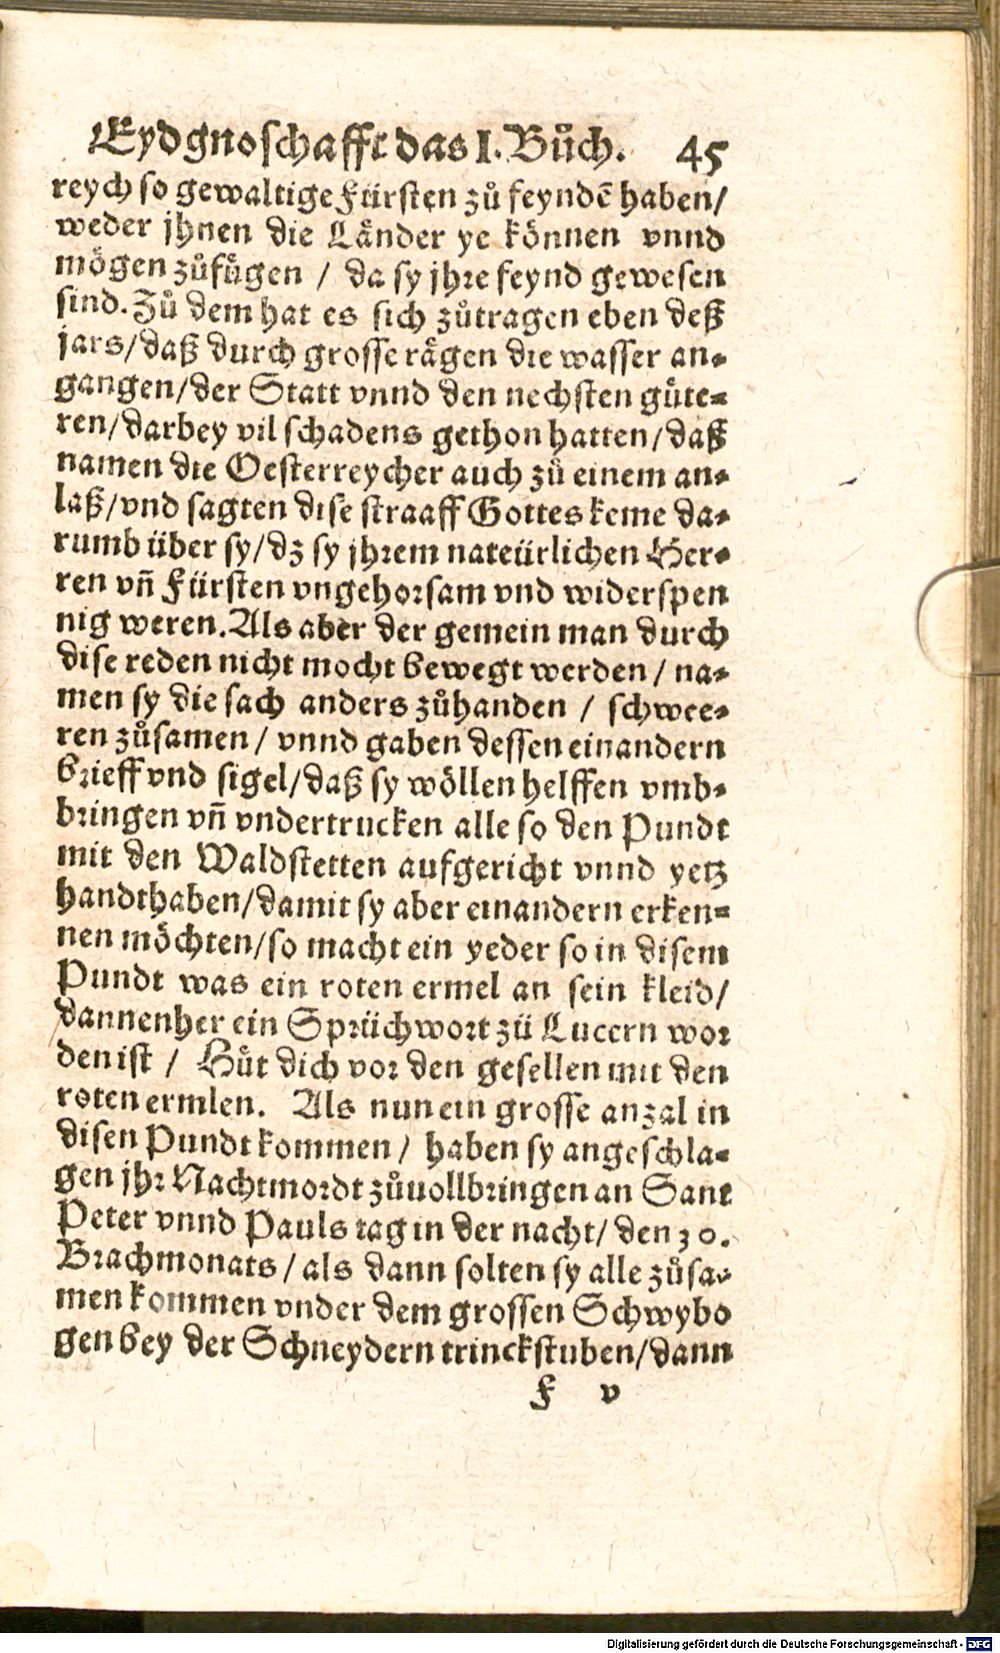 Eydgnoschafft das I. Bůch. 45
reych so gewaltige Fürsten zů feyndē haben/
weder jhnen die Länder ye können vnnd
mögen zůfůgen / da sy jhre feynd gewesen
sind. Zů dem hat es sich zůtragen eben deß
jars/daß durch grosse rägen die wasser an⸗
gangen/der Statt vnnd den nechsten gůte⸗
ren/darbey vil schadens gethon hatten/daß
namen die Oesterreycher auch zů einem an⸗
laß/vnd sagten dise straaff Gottes keme da⸗
rumb über sy/dz sy jhrem nateürlichen Her⸗
ren vñ Fürsten vngehorsam vnd widerspen
nig weren. Als aber der gemein man durch
dise reden nicht mocht bewegt werden / na⸗
men sy die sach anders zůhanden / schwee⸗
ren zůsamen / vnnd gaben dessen einandern
brieff vnd sigel/daß sy wöllen helffen vmb⸗
bringen vñ vndertrucken alle so den Pundt
mit den Waldstetten aufgericht vnnd yetz
handthaben/damit sy aber einandern erken⸗
nen möchten/so macht ein yeder so in disem
Pundt was ein roten ermel an sein kleid/
dannenher ein Sprüchwort zü Lucern wor
den ist / Hůt dich vor den gesellen mit den
roten ermlen. Als nun ein grosse anzal in
disen Pundt kommen / haben sy angeschla⸗
gen jhr Nachtmordt zůuollbringen an Sant
Peter vnnd Pauls tag in der nacht/ den 30.
Brachmonats / als dann solten sy alle zůsa⸗
men kommen vnder dem grossen Schwybo
gen bey der Schneydern trinckstuben/dann
F v
Digitalisierung gefördert durch die Deutsche Forschungsgemeinschaft - DFG